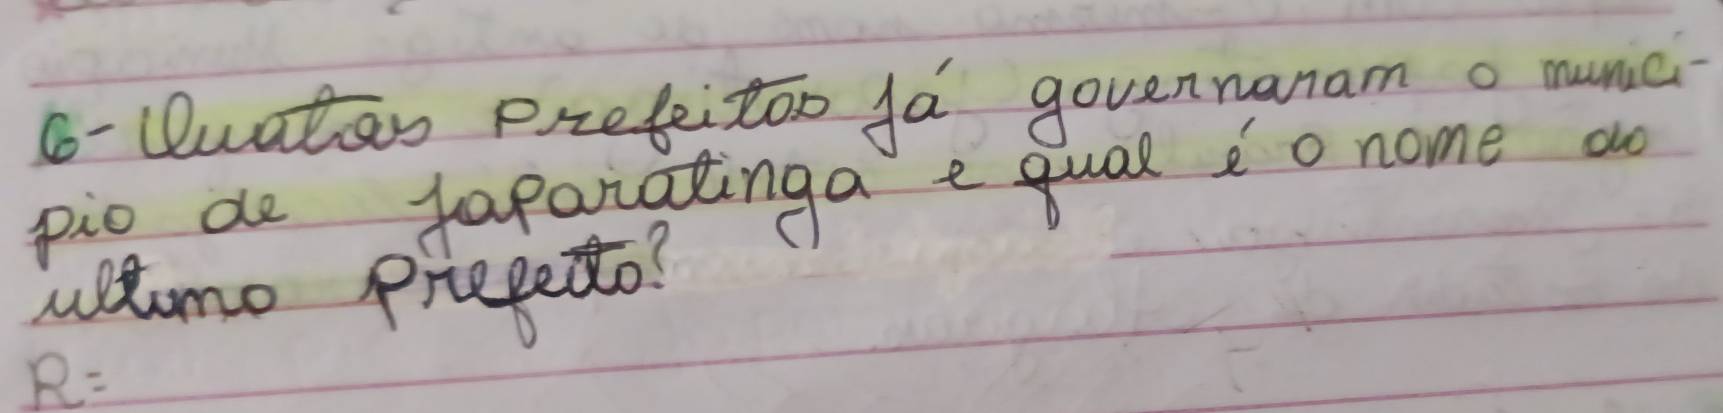 6- Quatas Prefeitos já governaram o munici-
pio de japaratinga e qual é o nome do
ultimo Prefeito?
R=